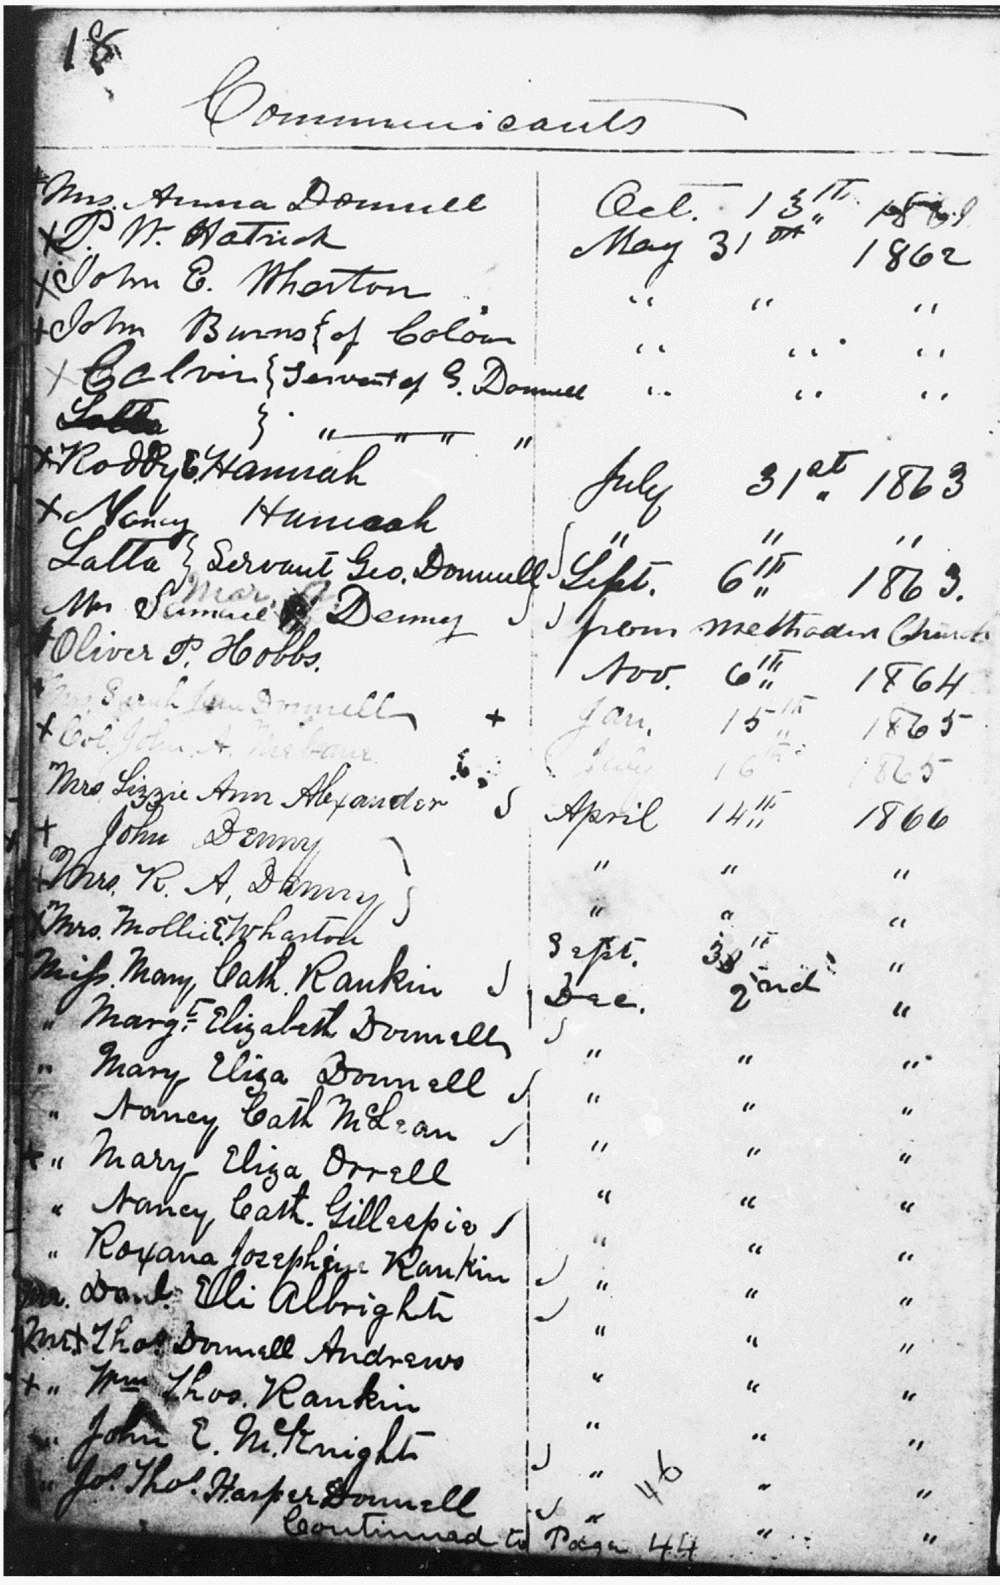 18
Communicants
Mrs. Anna Donnell Oct. 13th
x P. W. Hatrick May 31st 1862
x John E. Wharton " " "
+ John Burns { of Colour " " "
x Calvin { Servant of G. Donnell " " "
Latta } " " " "
x Roddy E. Hannah July 31st 1863
x Nancy Hannah " " "
Latta } Servant Geo. Donnell Sept. 6th 1863.
Mar.
Mrs Denny from Methodist Church
+ Oliver P. Hobbs. Nov. 6th 1864
Mrs Sarah Jane Donnell + Jan. 15th 1865
x Col. John A. 16th 1865
Mrs Lizzie Ann Alexander April 14th 1866
+ John Denny " " "
+ Mrs. R. A. Denny " " "
x Mrs. Mollie E. Wharton Sept. "
Miss. Mary Cath. Rankin Dec. 2nd "
" Margt. Elizabeth Donnell " " "
" Mary Eliza Donnell " " "
" Nancy Cath McLean " " "
+ " Mary Eliza Orrell " " "
" Nancy Cath. Gillespie " " "
" Roxana Josephine Rankin " " "
Mr. Danl. Eli Albright " " "
Mr. + Thos. Donnell Andrews " " "
+ " Wm Thos. Rankin " " "
" John E. McKnight " " "
" Jos. Thos. Harper Donnell " 46 " "
Continued to Page 44 " "